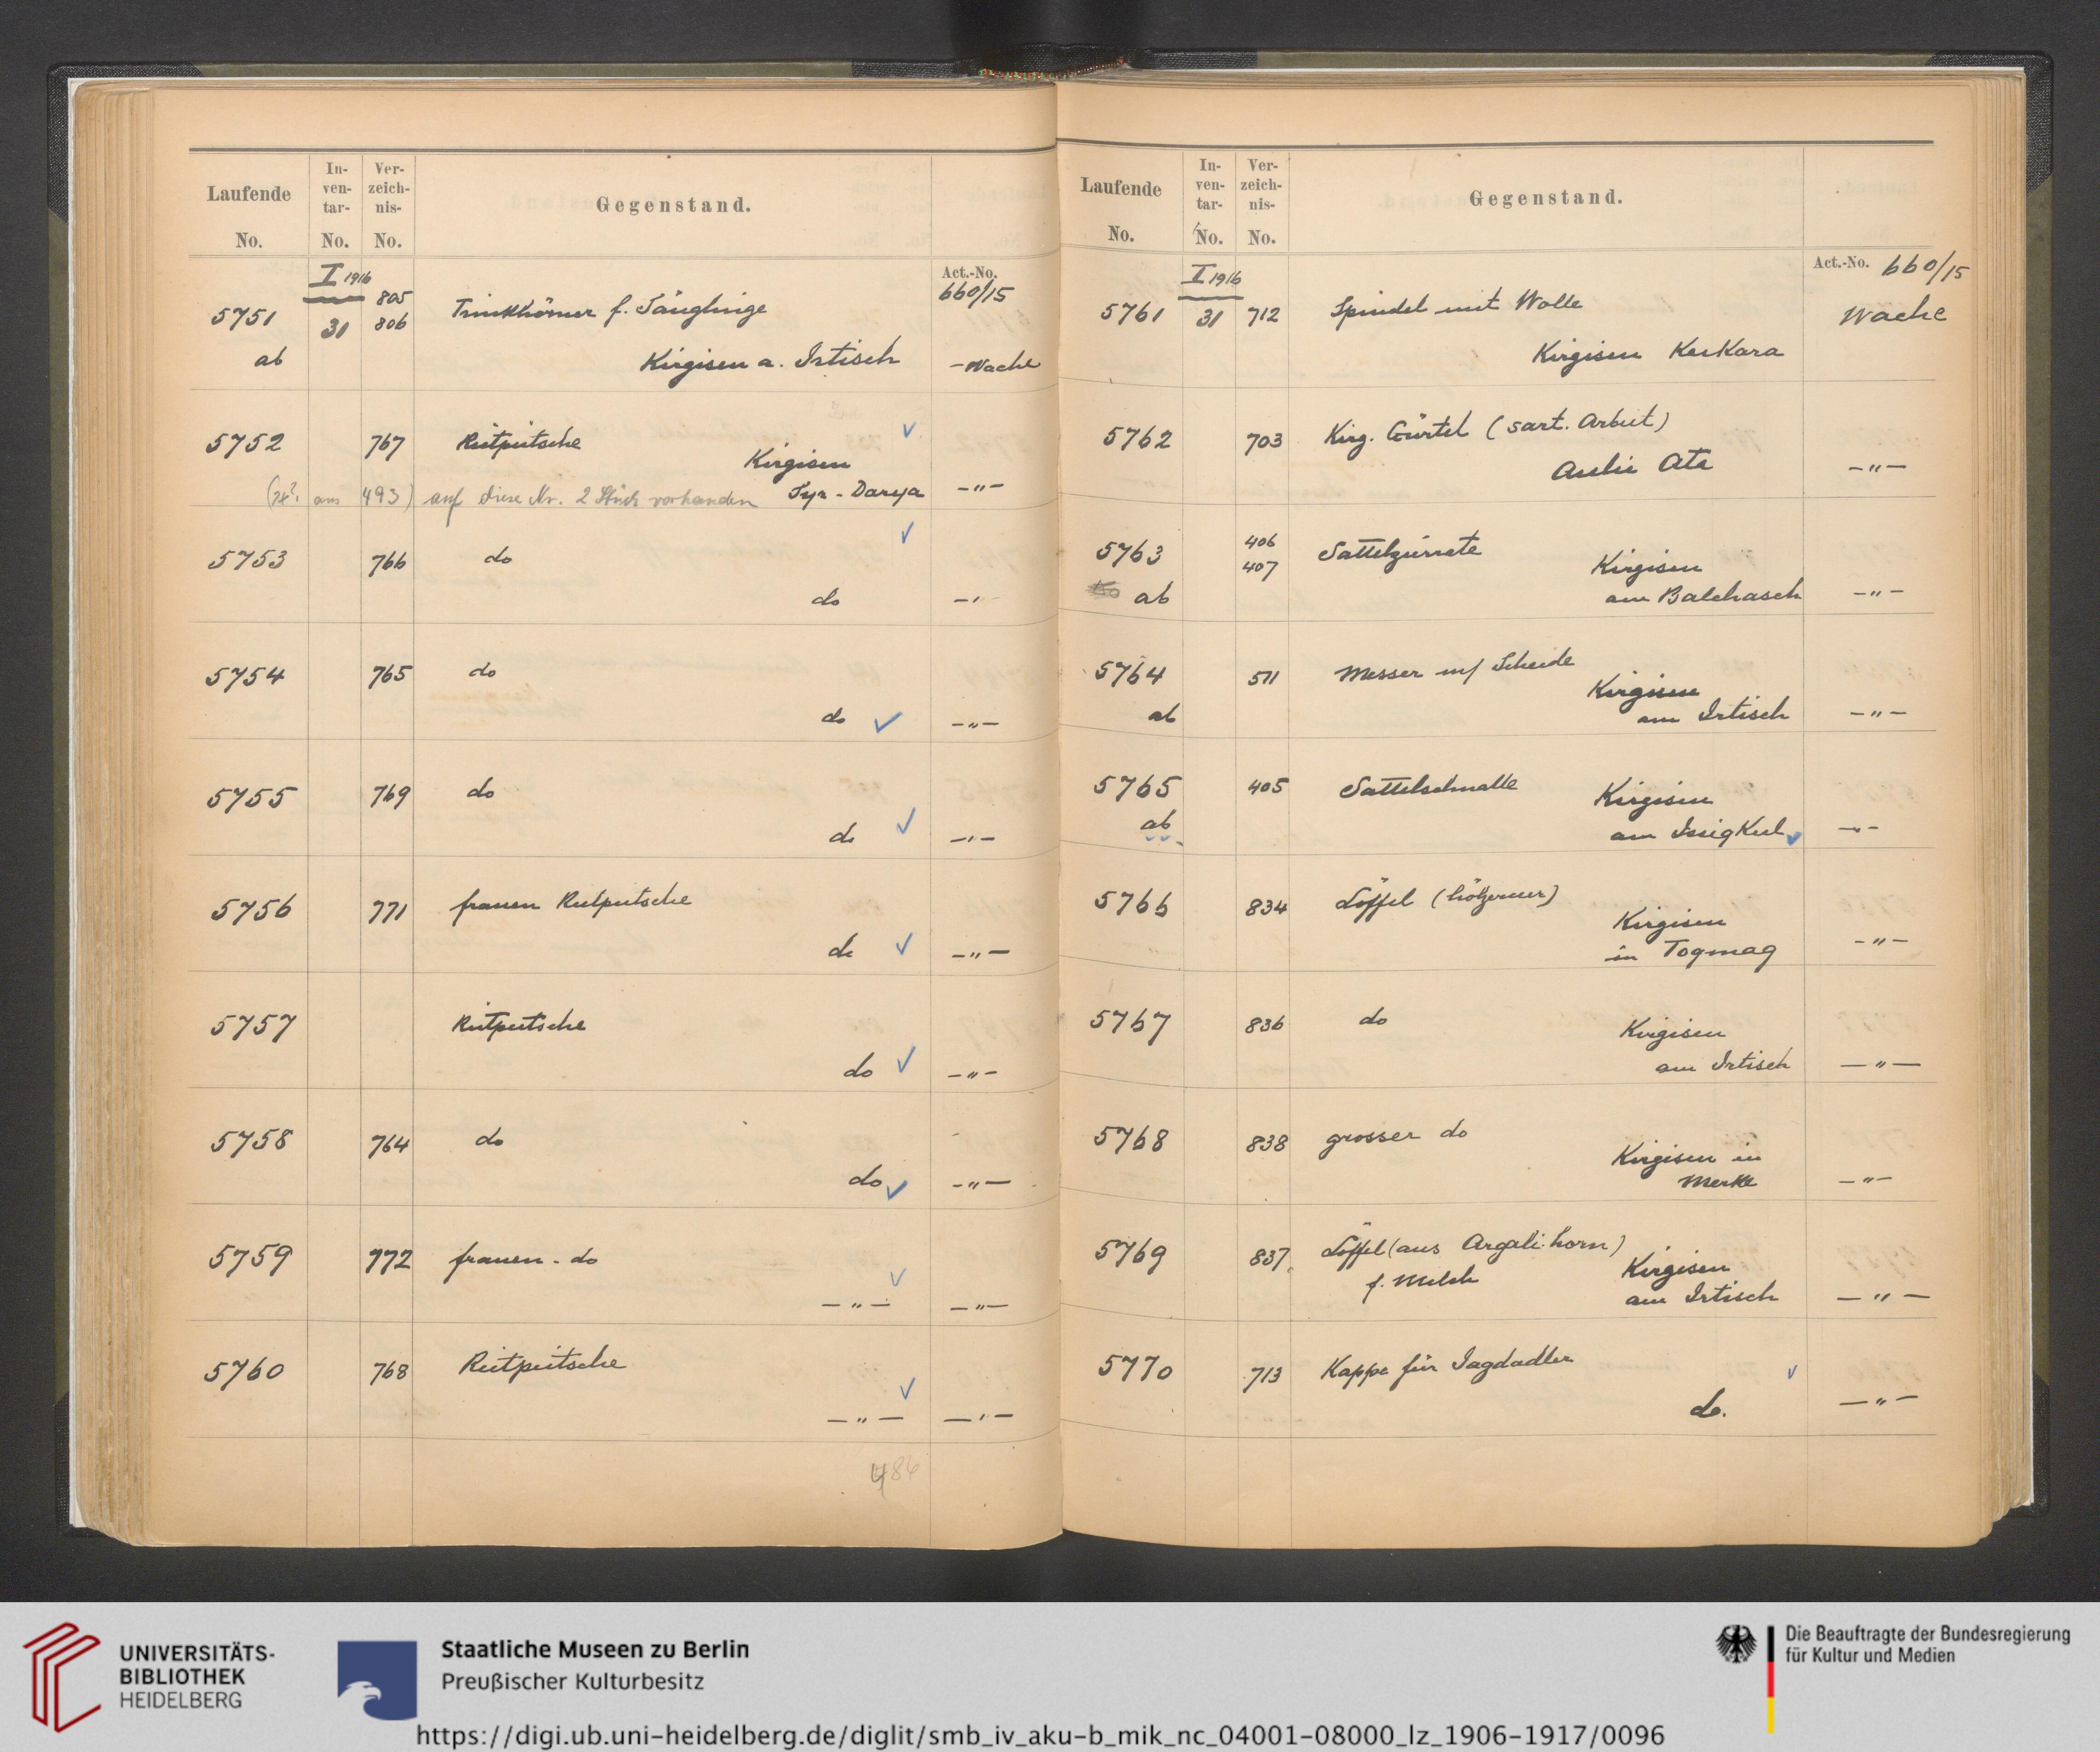 Laufende
No.
In-
ven-
tar-
No.
Ver-
zeich-
nis-
No.
Gegenstand.
Act.-No.
660/15
5751
ab
I 1916
31
805
806
Trinkhörner f. Säuglinge
Kirgisen a. Irtisch
- Wache
5752
767
Reitpeitsche
Kirgisen
Syr-Darya
-"-
aus 493) auf diese Nr. 2 Stück vorhanden
5753
766
do
do
-"-
5754
765
do
do
-"-
5755
769
do
do
-"-
5756
771
frauen Reitpeitsche
do
-"-
5757
Reitpeitsche
do
-"-
5758
764
do
do
-"-
5759
772
frauen - do
-"-
-"-
5760
768
Reitpeitsche
-"-
-"-
484
Laufende
No.
In-
ven-
tar-
No.
Ver-
zeich-
nis-
No.
Gegenstand.
Act.-No. 660/15
Wache
5761
I 1916
31
712
Spindel mit Wolle
Kirgisen KarKara
5762
703
Kirg. Gürtel (sart. Arbeit)
Aulie Ata
-"-
5763
ab
406
407
Sattelgurrte
Kirgisen
am Balchasch
-"-
5764
ab
511
Messer m/ Scheide
Kirgisen
am Irtisch
-"-
5765
ab
405
Sattelschnalle
Kirgisen
am IssigKul
-"-
5766
834
Löffel (hölzerner)
Kirgisen
in Togmag
-"-
5767
836
do
Kirgisen
am Irtisch
-"-
5768
838
grosser do
Kirgisen in
Merke
-"-
5769
837
Löffel (aus Argali-horn)
f. Milch
Kirgisen
am Irtisch
-"-
5770
713
Kappe für Jagdadler
do.
-"-
UNIVERSITÄTS-
BIBLIOTHEK
HEIDELBERG
Staatliche Museen zu Berlin
Preußischer Kulturbesitz
Die Beauftragte der Bundesregierung
für Kultur und Medien
https://digi.ub.uni-heidelberg.de/diglit/smb_iv_aku-b_mik_nc_04001-08000_lz_1906-1917/0096